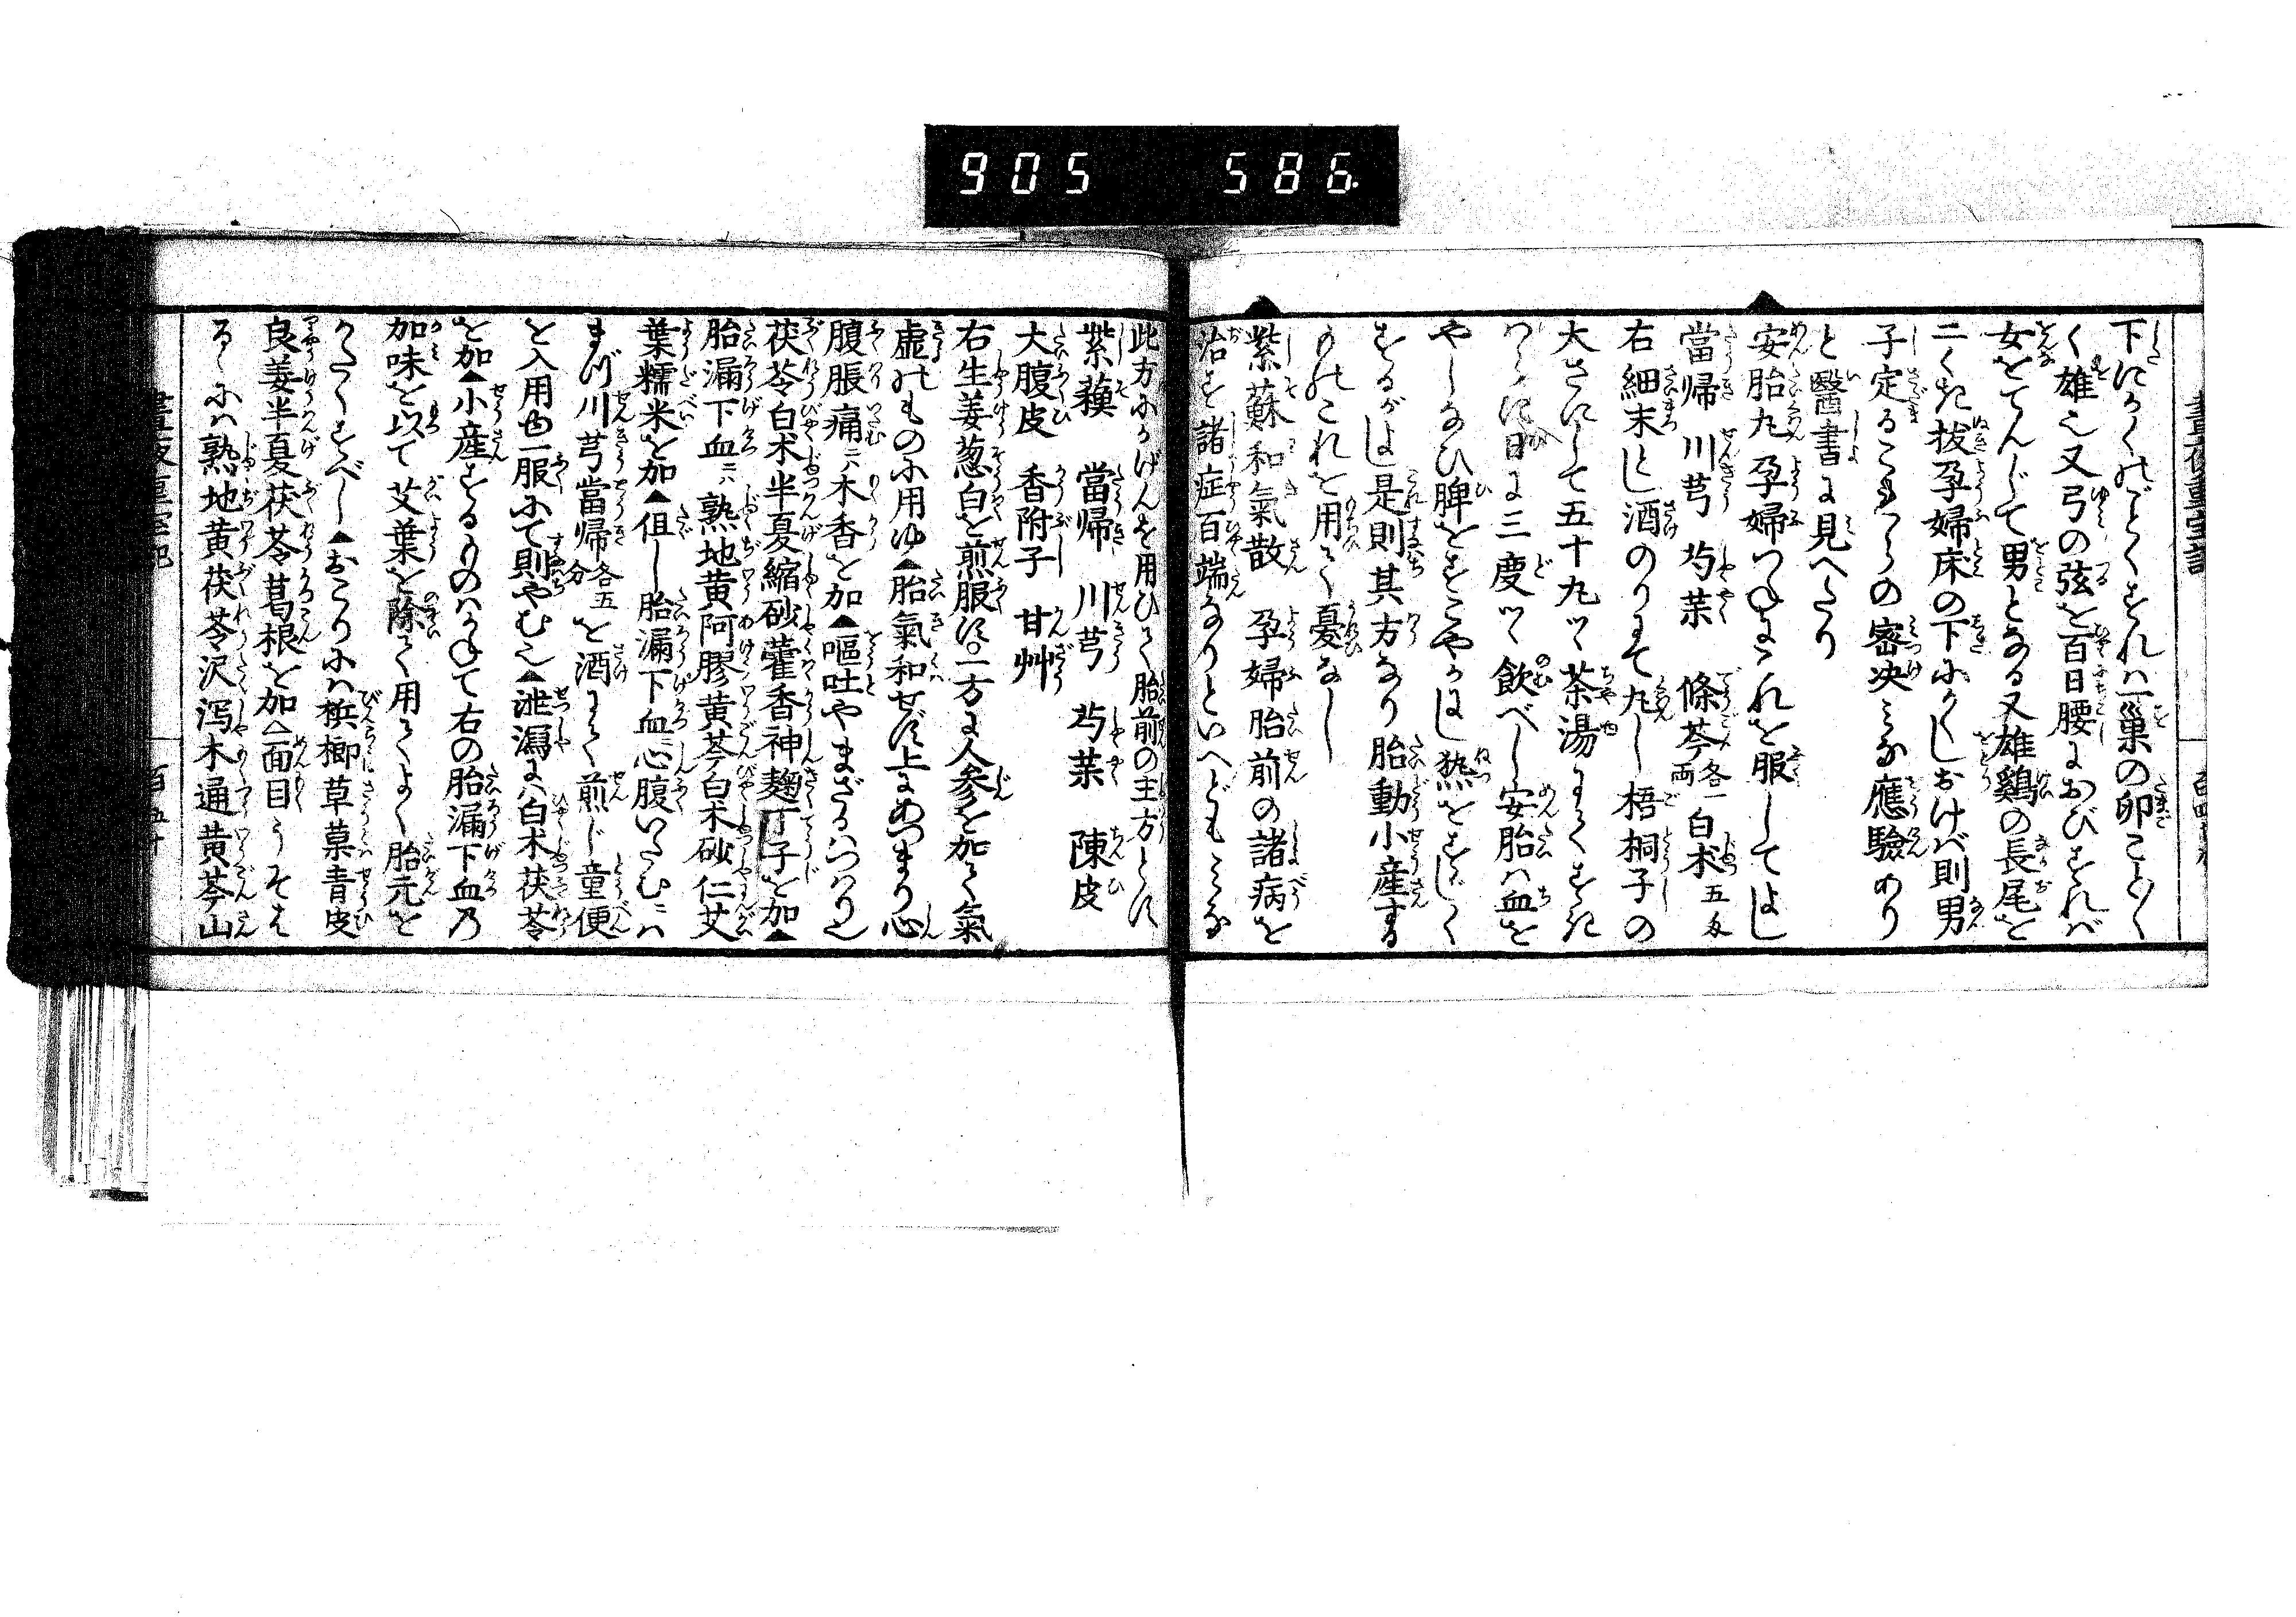 905 586
下にかくのごとくすれば一巣の卵こと〴〵
く雄也又弓の弦を百日腰におびすれば
女をてんじて男となる又雄鶏の長尾を
二くき抜孕婦床の下にかくしおけば則男
子定ることこれらの密决みな應驗あり
と醫書に見へたり
安胎丸孕婦つねにこれを服してよし
當帰 川芎 芍薬 條芩各一両 白术五匁
右細末とし酒のりにて丸し梧桐子の
大さにして五十丸ツヽ茶湯にてすき
はらに日に三度ツヽ飲べし安胎は血を
やしなひ脾をすこやかにし熱をすゞしく
するがよし是則其方なり胎動小産する
ものこれを用て憂なし
紫蘇和氣散 孕婦胎前の諸病を
治す諸症百端なりといへどもみな
此方にかげんを用ひて胎前の主方とす
紫蘇 當帰 川芎 芍薬 陳皮
大腹皮 香附子 甘艸
右生姜葱白を煎服す○一方に人参を加て氣
虚のものに用ゆ▲胎氣和せず上にあつまり心
腹脹痛ニハ木香を加▲嘔吐やまざるはつはり也
茯苓白术半夏縮砂藿香神麹丁子を加▲
胎漏下血ニハ熟地黄阿膠黄芩白术砂仁艾
葉糯米を加▲但し胎漏下血心腹いたむニハ
まづ川芎當帰各五分を酒にて煎じ童便
を入用也一服にて則やむ也▲泄瀉には白术茯苓
を加▲小産するものはかねて右の胎漏下血乃
加味を以て艾葉を除て用てよく胎元を
かたくすべし▲おこりには梹榔草菓青皮
良姜半夏茯苓葛根を加△面目うそは
るゝには熟地黄茯苓沢瀉木通黄芩山